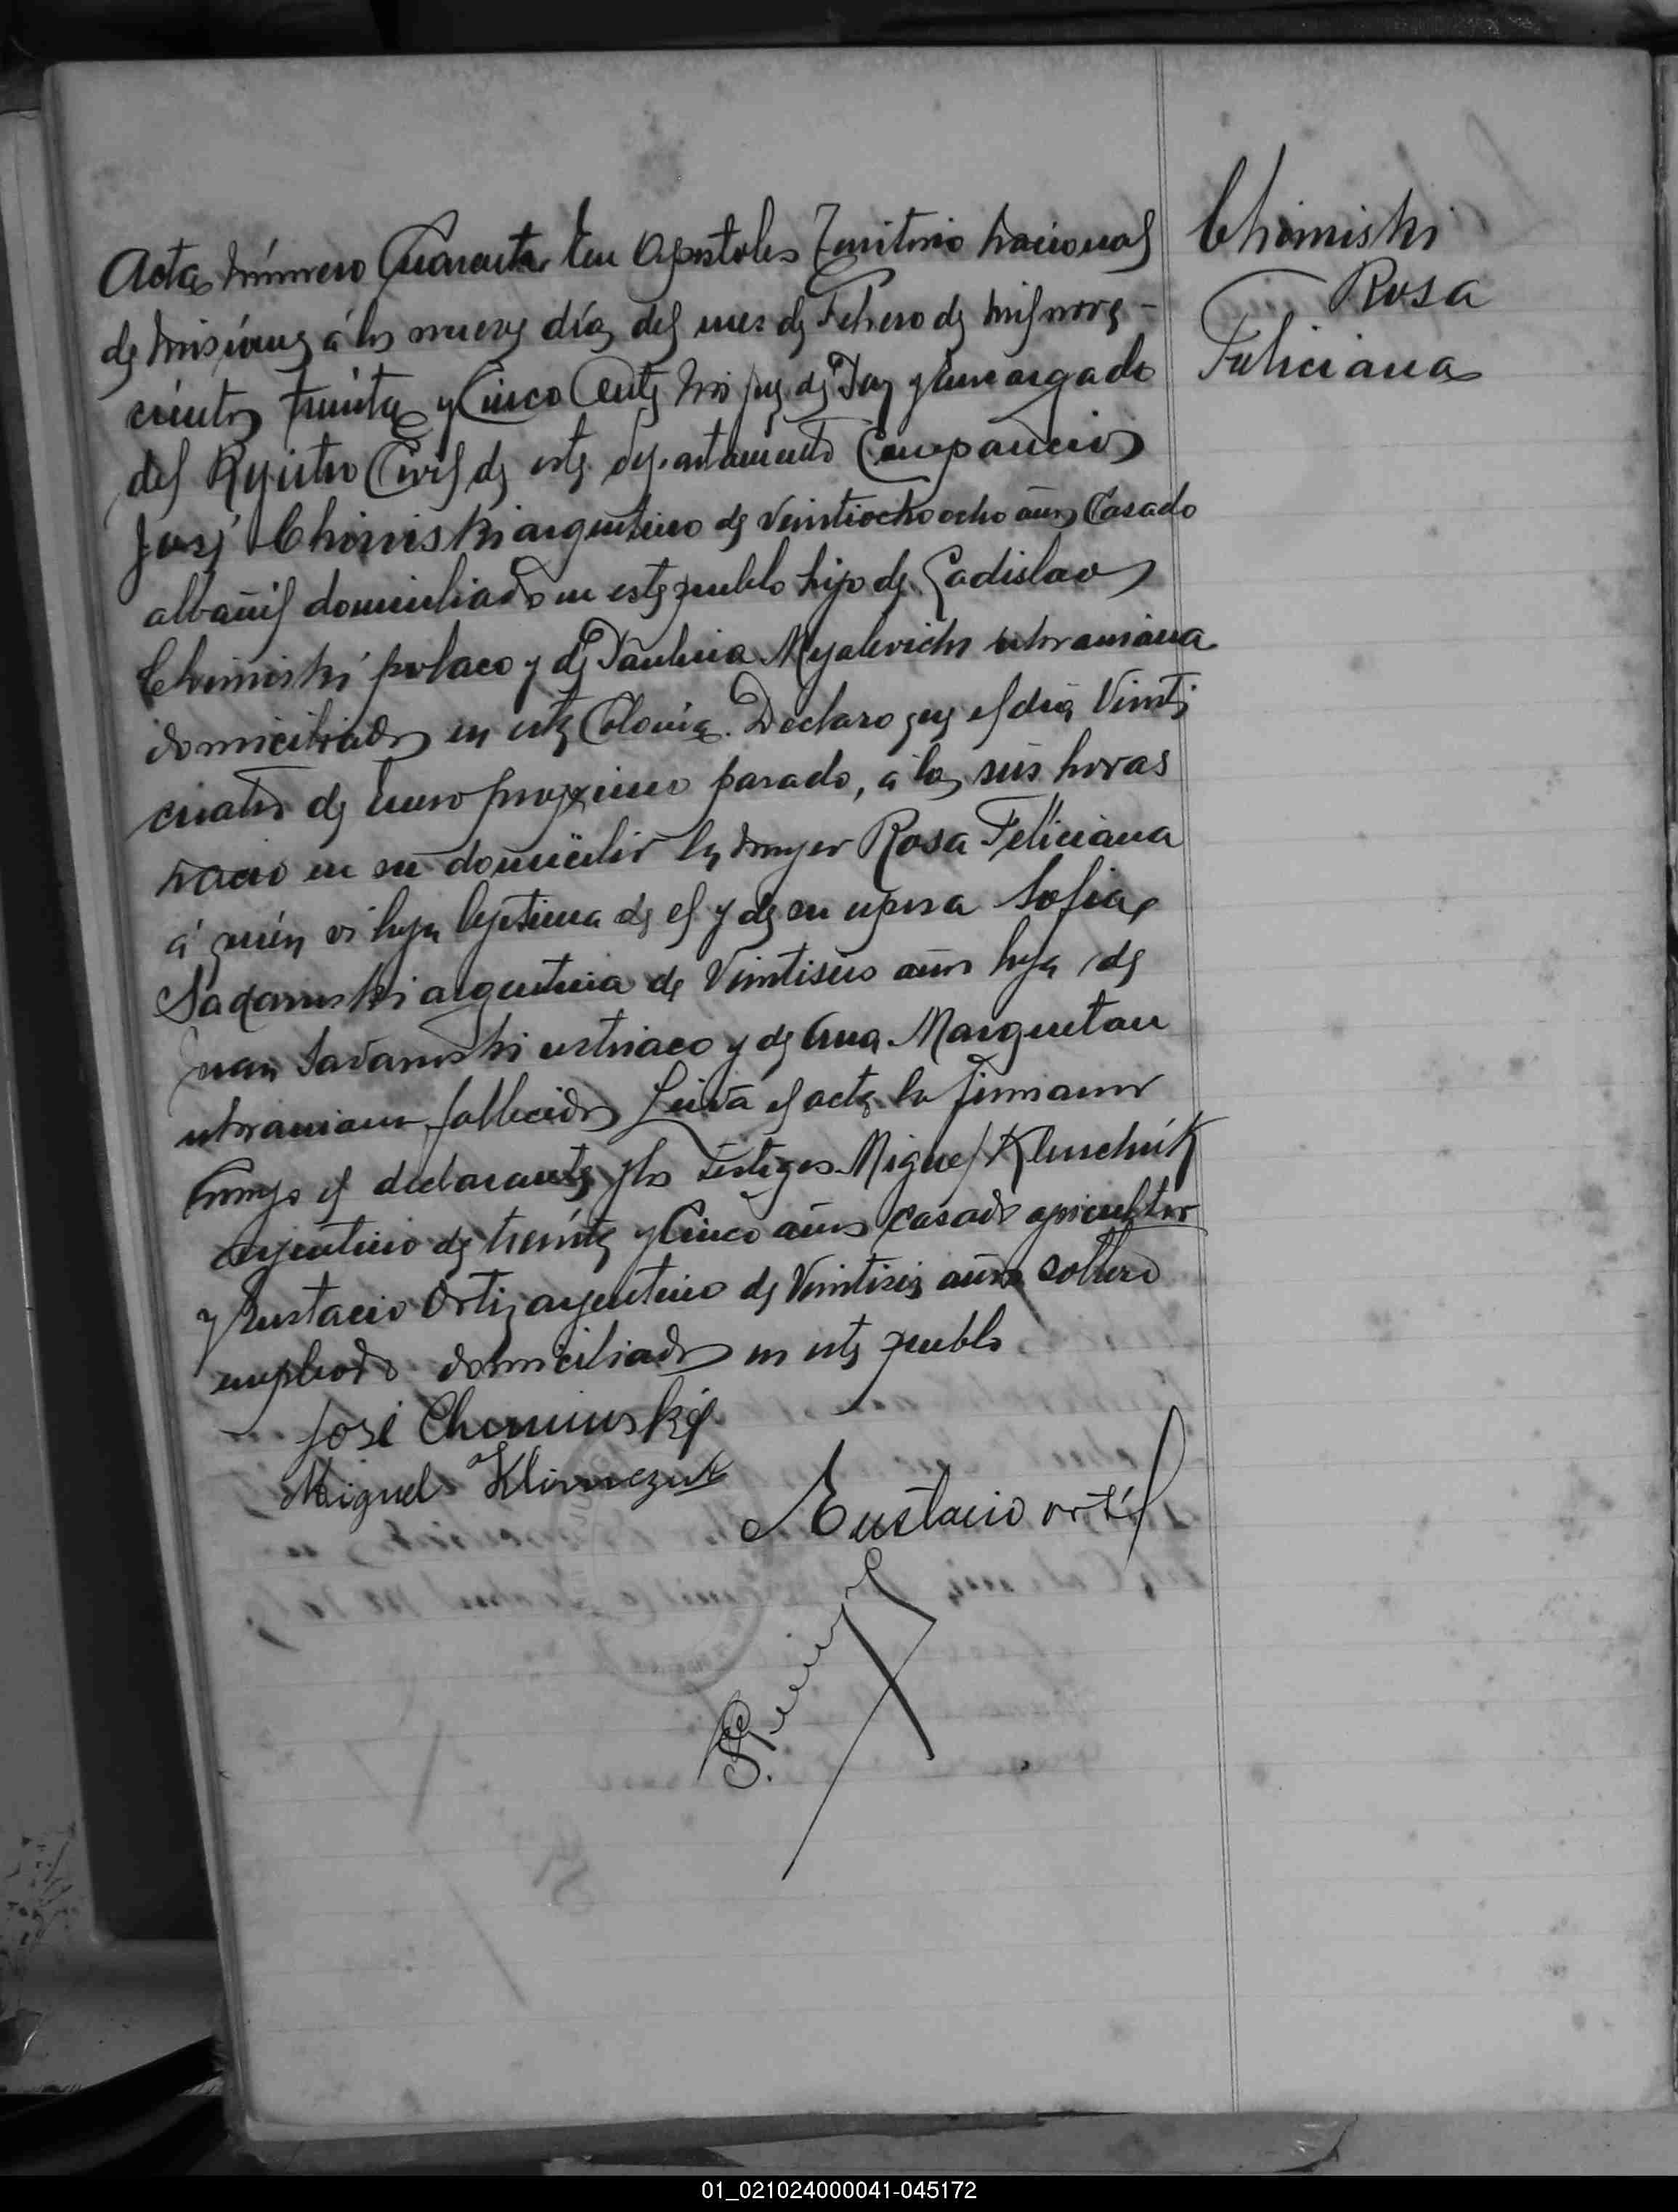 Acta número Cuarenta En Apostoles Territorio Nacional
de Misiones á los nueve días del mes de Febrero de mil nove-
cientos treinta y Cinco Ante mi juez de Paz y Encargado
del Registro Civil de este departamento Compareció
José Chimiski argentino de veintiocho ocho años Casado
albañil domiciliado en este pueblo hijo de Ladislao
Chimiski polaco y de Paulina ukraniana
domiciliados en esta Colonia. Declaro que el día Veinti
cuatro de Enero proximo pasado, á las seis horas
nacio en su domicilio la mujer Rosa Feliciana
á quién es hija lejitima de el y de su esposa Sofia
argentina de Veintiseis años hija de
Juan ustriaco y de Ana
ukraniana fallecidos Leida el acta la firmaron
Conmigo el declarante y los testigos Miguel
argentino de treinta y Cinco años casado agricultor
y Eustacio Ortiz argentino de Veintiseis años soltero
empleado domiciliados en este pueblo
José
Miguel Klimezuk
Eustacio ortíz
Chimiski
Rosa
Feliciana
01_021024000041-045172